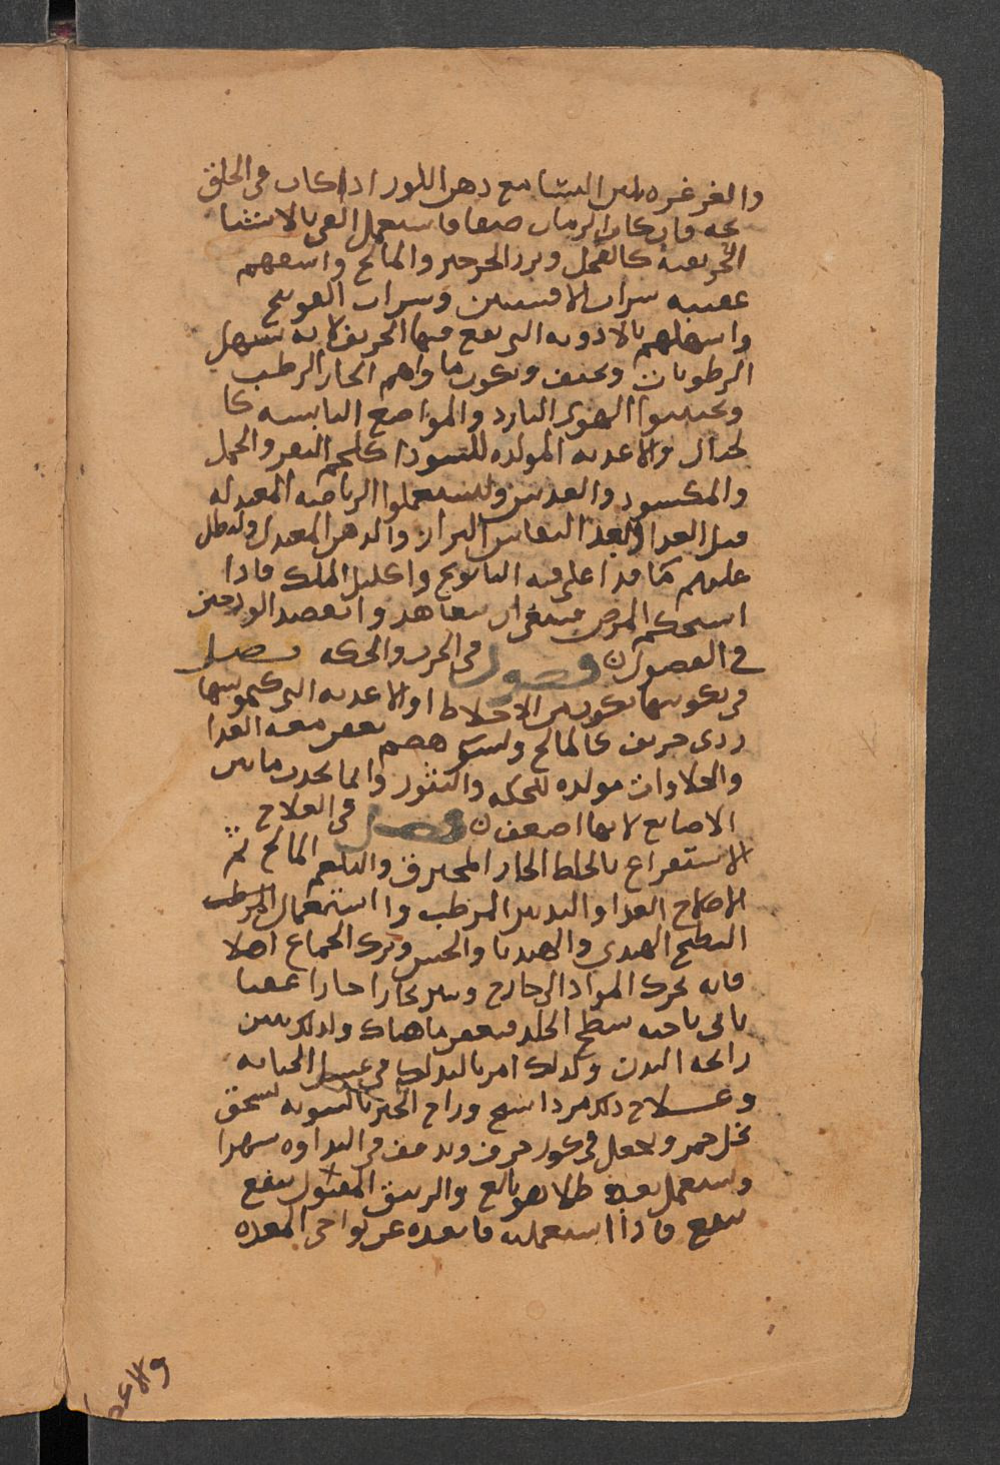 والغرغره بلبن النسا مع دهن اللوز اذا كان في الحلق
بحه فان كان الزمان صيفا فاستعمل القي بالاشيا
الحريفه كالفجل وبزر الجرجير والمالح واسقهم
عقيبه شراب الافسنتين وشراب الفوتنج
واسهلهم بالادويه التي يقع فيها الحريف لانه يسهل
الرطوبات ويجفف ويكون ماواهم الحار الرطب
ويجتنبوا الهوى البارد والمواضع اليابسه كا
لجبال والاغديه المولده للسودا كلحم البقر والجمل
والمكسود والعدس وليستعملوا الرياضه المعتدله
قبل الغدا وبعد الغدا البراز والدهن المعتدل وليطل
عليهم بما قد اغلي فيه البابونج واكليل الملك فاذا
استحكم المرض فينبغي ان يتعاهدوا بفصد الودجين
في الفصول فصول في الجرب والحكه فصل
في تكونها تكون من الاخلاط او الاغديه التي كيموسها
ردي حريف كالمالح ولسو هضم يعفن معه الغدا
والحلاوات مولده للحكه والبثور وانما يحدث ما بين
الاصابع لانها اضعف فصل في العلاج
الاستفراغ بالخلط الحار المحترق والبلغم المالح ثم
الاصلاح الغدا والتدبير المرطب واستعمال المرطب
البطيخ الهندي والهندبا والخس وترك الجماع اصلا
فانه يحرك المواد الى خارج ويثير بخارا حارا عفنا
ياتي ناحيه سطح الجلد فيعفن ما هناك ولذلك ينتن
رائحه البدن وكذلك امر بالتدلك في غسل الجنابه
وعلاج ذلك مرداسنج وزاج الحبر بالسويه يسحق
بخل خمر ويجعل في كوز خزف ويدفن في النداوه شهرا
ويستعمل بعده طلا فهو بالغ والزيبق المقتول ينفع
نفع فاذا استعملته فابعده عن نواحي المعده
والاعضا